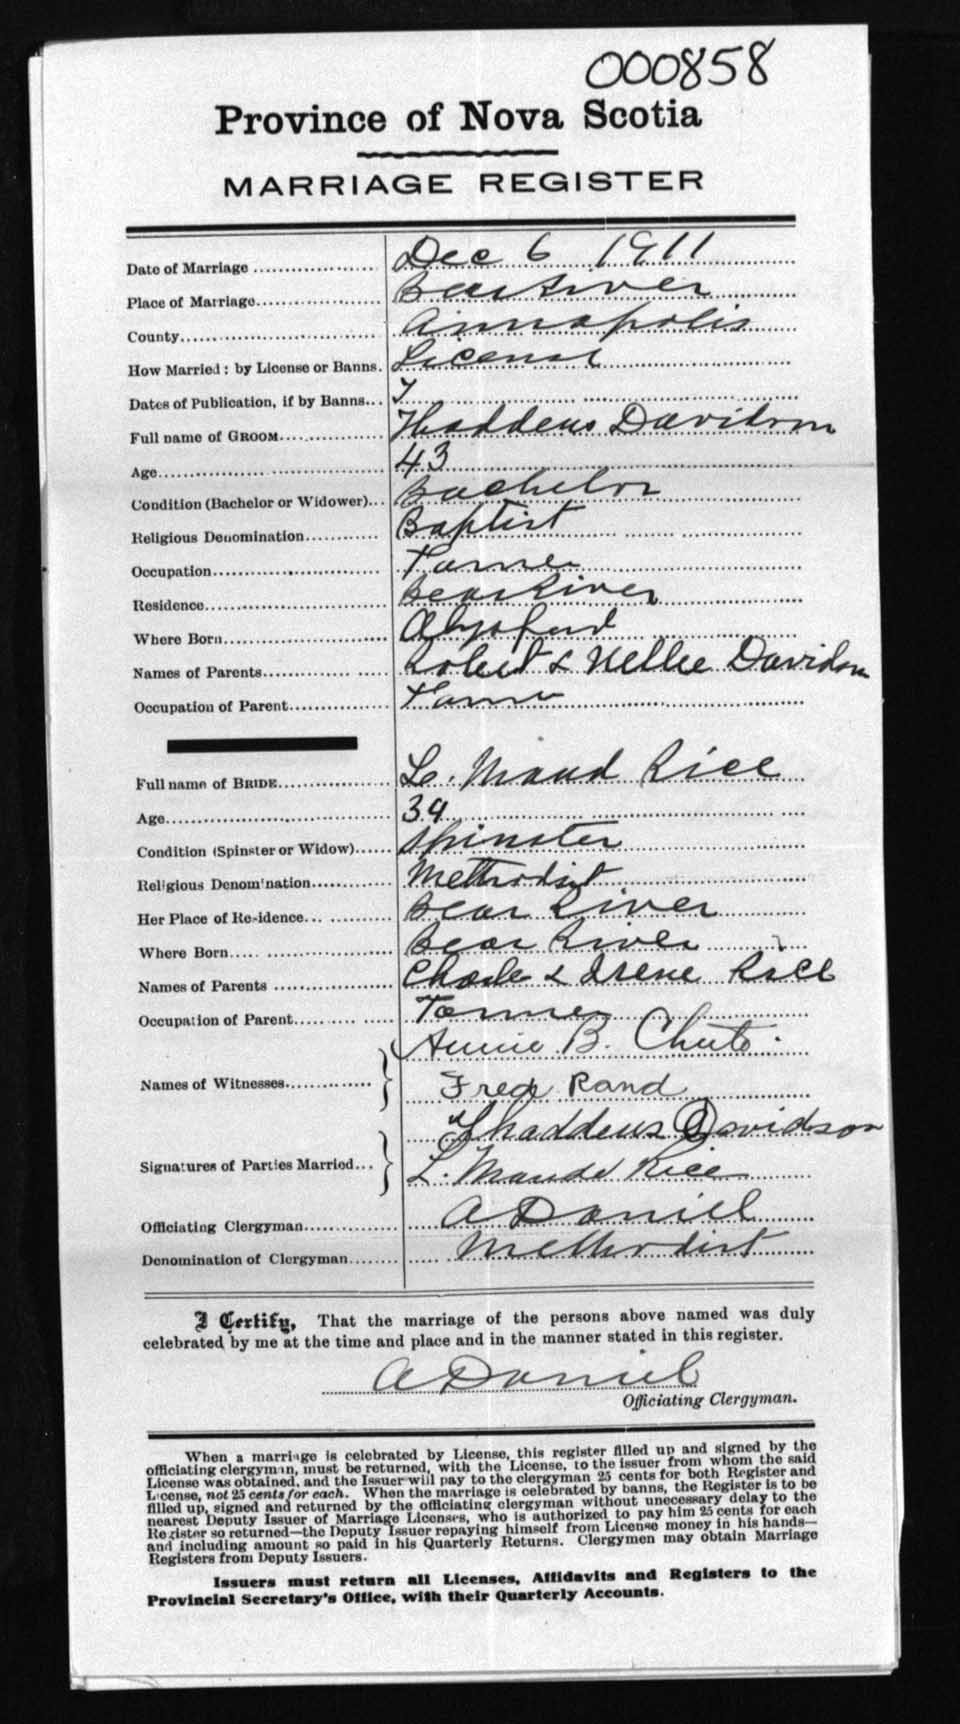 000858
Province of Nova Scotia
MARRIAGE REGISTER
Date of Marriage Dec 6 1911
Place of Marriage Bear River
County Annapolis
How Married: by License or Banns. License
Dates of Publication, if by Banns
Full name of GROOM Thaddeus Davidson
Age 43
Condition (Bachelor or Widower) Bachelor
Religious Denomination Baptist
Occupation Farmer
Residence Bear River
Where Born
Names of Parents Robert & Nellie Davidson
Occupation of Parent Farmer
Full name of BRIDE L. Maud Rice
Age 39
Condition (Spinster or Widow) Spinster
Religious Denomination Methodist
Her Place of Residence Bear River
Where Born Bear River
Names of Parents Charle & Irene Rice
Occupation of Parent Farmer
Annie B. Chute.
Names of Witnesses
Fred Rand
Thaddeus Davidson
Signatures of Parties Married
L. Maude Rice
Officiating Clergyman A Daniel
Denomination of Clergyman Methodist
I Certify, That the marriage of the persons above named was duly
celebrated by me at the time and place and in the manner stated in this register.
A Daniel
Officiating Clergyman.
When a marriage is celebrated by License, this register filled up and signed by the
officiating clergyman, must be returned, with the License, to the issuer from whom the said
License was obtained, and the Issuer will pay to the clergyman 25 cents for both Register and
License, not 25 cents for each. When the marriage is celebrated by banns, the Register is to be
filled up, signed and returned by the officiating clergyman without unecessary delay to the
nearest Deputy Issuer of Marriage Licenses, who is authorized to pay him 25 cents for each
Register so returned—the Deputy Issuer repaying himself from License money in his hands—
and including amount so paid in his Quarterly Returns. Clergymen may obtain Marriage
Registers from Deputy Issuers.
Issuers must return all Licenses, Affidavits and Registers to the
Provincial Secretary's Office, with their Quarterly Accounts.